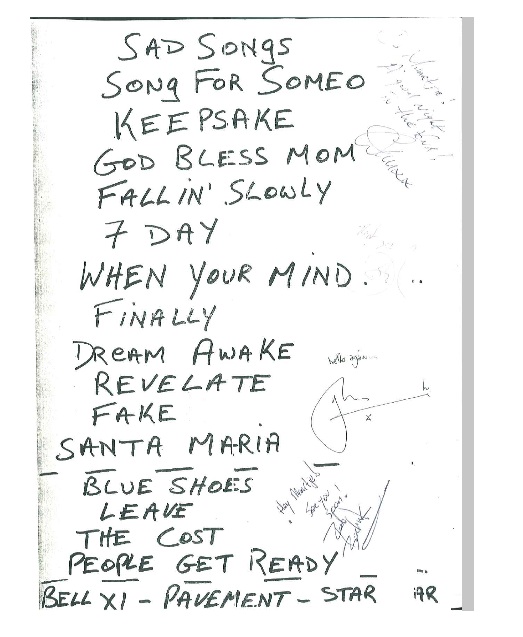 SAD SONGS
SONG FOR SOMEO
KEEPSAKE
GOD BLESS MOM
FALLIN' SLOWLY
7 DAY
WHEN YOUR MIND...
FINALLY
DREAM AWAKE
REVELATE
FAKE
SANTA MARIA
BLUE SHOES
LEAVE
THE COST
PEOPLE GET READY
BELL XI - PAVEMENT - STAR AR
A good night
in the End!
hello again...
x
Hey
See you
soon!